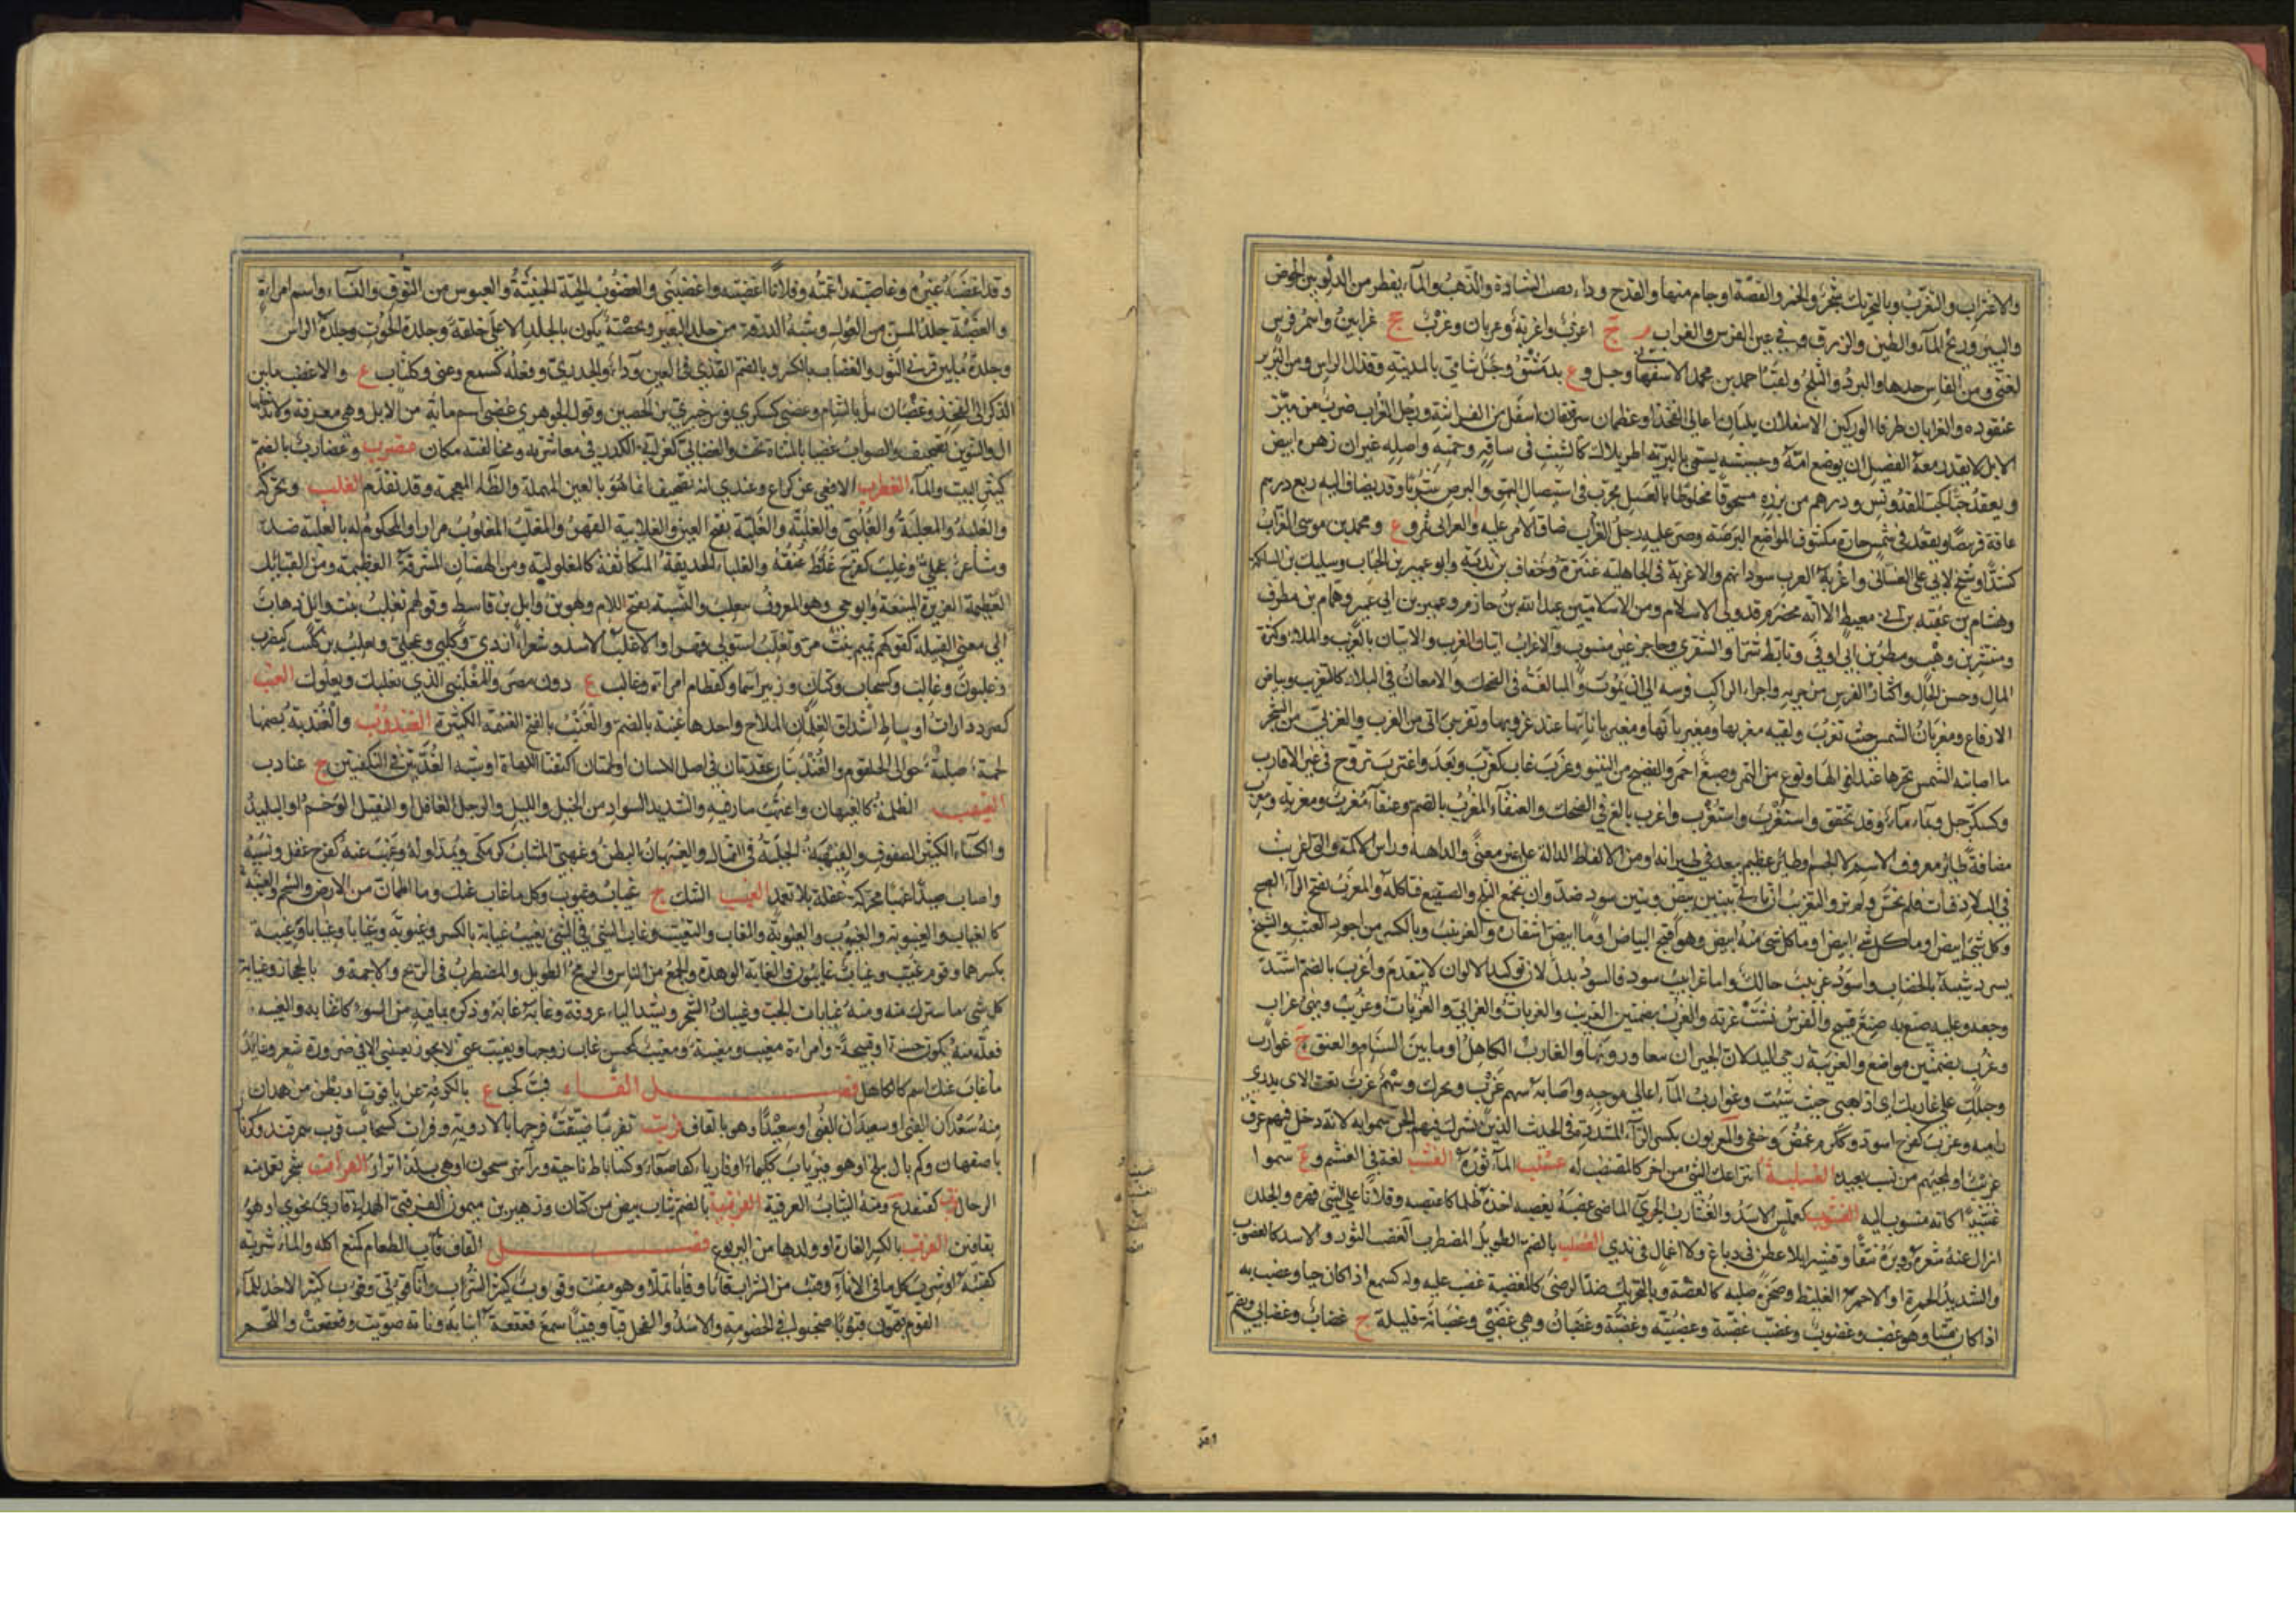 والاغتراب والتغرب وبالتحريك شجر والخمر والفضة او جام منها والقدح وداء يصيب الشاة والذهب والماء يقطر من الدلو بين الحوض
والبئر وريح الماء والطين والزرق في عين الفرس والغراب م ج اغرب واغربة وغربان وغرب جج غرابين واسم فرس
لغني ومن الفاس حدها والبرد والثلج ولقب احمد بن محمد الاصفهاني وجبل و ع بدمشق وجبل شامي بالمدينة وقذال الراس ومن البرير
عنقوده والغرابان طرفا الوركين الاسفلان يليان اعالي الفخذ او عظمان رقيقان اسفل من الفراشة ورجل الغراب ضرب من
الابل لا يقدر معه الفصيل ان يرضع امه وحشيشة يسمى بالبربرية اطريلال كالشبث في ساقه وجمته واصله غير ان زهره ابيض
ويعقد حبا كحب المقدونس ودرهم من بزره مسحوقا مخلوطا بالعسل مجرب في استيصال البهق والبرص شربا وقد يضاف اليه ربع درهم
عاقر قرحا ويقعد في شمس حارة مكشوف المواضع البرصة وصر عليه رجل الغراب ضاق الامر عليه والغرابي ثمر و ع ومحمد بن موسى الغراب
شيخ لابي علي الغساني واغربة العرب سودانهم والاغربة في الجاهلية عنترة وخفاف بن ندبة وابو عمير بن الحباب وسليك بن السلكة
وهشام بن عقبة بن ابي معيط الا انه مخضرم قد ولي الاسلام ومن الاسلاميين عبد الله بن خازم وعمير بن ابي عمير وهمام بن مطرف
ومنتشر بن وهب ومطر بن ابي اوفى وتابط شرا والشنفرى وحاجز غير منسوب والاغراب اتيان الغرب والاتيان بالغريب والملء وكثرة
المال وحسن الحال واكثار الفرس من جريه واجراء الراكب فرسه الى ان يموت والمبالغة في الضحك والامعان في البلاد كالتغريب وبياض
الارفاغ ومغربان الشمس حيث تغرب ولقيته مغربها ومغيربانها ومغيرباناتها عند غروبها وتغرب اتى من الغرب والغربي من الشجر
ما اصابته الشمس بحرها عند افولها ونوع من التمر وصبغ احمر والفضيخ من النبيذ وغرب غاب كغرب وبعد واغترب تزوج في غير الاقارب
وكسكر جبل وماء وقد تخفف واستغرب واستغرب واغرب بالغ في الضحك والعنقاء المغرب بالضم وعنقاء مغرب ومغربة ومغرب
مضافة طائر معروف الاسم لا الجسم او طائر عظيم يبعد في طيرانه او من الالفاظ الدالة على غير معنى والداهية وراس الاكمة والتي اغربت
في البلاد فنات فلم تحس ولم تر والتغريب ان ياتي ببنين بيض وبنين سود ضد وان يجمع الثلج والصقيع فتاكله والمغرب بفتح الراء الصبح
وكل شيء ابيض او ما كل شيء منه ابيض وهو اقبح البياض او ما ابيض اشفاره والغربيب بالكسر من اجود العنب والشيخ
يسود شيبه بالخضاب واسود غربيب حالك واما غرابيب سود فالسود بدل لان توكيد الالوان لا يتقدم واغرب بالضم اشتد
وجعه وعليه صنع به صنع قبيح والفرس فشت غرته والغرب بضمتين الغريب والغرابات والغرابي والغربات وغرب ونهي غراب
وغرب بضمتين مواضع والغريبة رحى اليد لان الجيران يتعاورونها والغارب الكاهل او ما بين السنام والعنق ج غوارب
وحبلك على غاربك اي اذهبي حيث شئت وغوارب الماء اعالي موجه واصابه سهم غرب ويحرك وسهم غرب نعتا لا يدرى
راميه وغرب كفرح اسود وككرم غمض وخفي والمغربون بكسر الراء المشددة في الحديث الذين تشرك فيهم الجن سموا به لانه دخل فيهم عرق
غريب او لمجيئهم من نسب بعيد الغسلبة انتزاعك الشيء من اخر كالمغتصب له غسنب الماء ثوره الغشب لغة في الغشم و ع سموا
غشيبا كانه منسوب اليه الغشرب كعملس الاسد والغشارب الجريء الماضي غصبه يغصبه اخذه ظلما كاغتصبه وفلانا على الشيء قهره والجلد
ازال عنه شعره ووبره نتفا وقشرا بلا عطن في دباغ ولا اعمال في ندى الغصلب بالضم الطويل المضطرب الغضب الثور والاسد كالغضوب
والشديد الحمرة او الاحمر الغليظ وصخرة صلبة كالغضبة وبالتحريك ضد الرضى كالمغضبة غضب عليه وله كسمع اذا كان حيا وغضب به
اذا كان ميتا وهو غضب وغضوب وغضب غضبة وغضبة وغضبة وغضبان وهي غضبى وغضبانة قليلة ج غضاب وغضابى ويضم
وقد
وقد اغضبه غيره وغاضبته راغمته وفلانا اغضبته واغضبني والغضوب الحية الخبيثة والعبوس من النوق والنساء واسم امراة
والغضبة جلد المسن من الوعول وشبه الدرقة من جلد البعير وبخصة يكون بالجلد الاعلى خلقة وجلدة الحوت وجلدة الراس
وجلدة ما بين قرني الثور والغضاب بالكسر وبالضم القذى في العين وداء او الجدري وفعله كسمع وعني وككتاب ع والاغضب ما بين
الذكر الى الفخذ وغضبان جبل بالشام وغضبى كسكرى فرس خيبري بن الحصين وقول الجوهري غضبى اسم مائة من الابل وهي معرفة ولا تدخلها
ال والتنوين تصحيف والصواب غضيا بالمثناة تحت والغضابي كغرابي الكدر في معاشرته ومخالفته مكان غضرب وغضارب بالضم
كثير النبت والماء الغطرب الافعى عن كراع وعندي انه تصحيف انما هو بالعين المهملة والظاء المعجمة وقد تقدم الغلب ويحرك
والغلبة والمغلبة والغلبى والغلبة والغلبة بفتح العين والغلابية القهر والمغلب المغلوب مرارا والمحكوم له بالغلبة ضد
وشاعر عجلي وغلب كفرح غلظ عنقه والغلباء الحديقة المتكاثفة كالمغلولبة ومن الهضاب المشرفة العظيمة ومن القبائل
العظيمة العزيزة الممتنعة وابو حي وهو المعروف بتغلب والنسبة بفتح اللام وهو بن وائل بن قاسط وقولهم تغلب بنت وائل ذهاب
الى معنى القبيلة كقولهم تميم بنت مر وتغلب استولى قهرا والاغلب الاسد وشعراء ازدي وكلبي وعجلي وتغلب بن كليب كيضرب
وغلبون وغالب وكسحاب وكتان وزبير اسما وكقطام امراة وغالب ع دون مصر والمغلنبي الذي يغلبك ويعلوك الغنب
كصرد دارات اوساط اشداق الغلمان الملاح واحدها غنبة بالضم والغنب بالفتح الغنيمة الكثيرة الغندوب والغندبة بضمها
لحمة صلبة حوالي الحلقوم والغندبتان عقدتان في اصل اللسان او لحمتان اكتنفتا اللهاة او شبه الغدتين في النكفتين ج غنادب
الغيهب الظلمة كالغيهبان واغتهب سار فيه والشديد السواد من الخيل والليل والرجل الغافل او الثقيل الوخم او البليد
والكساء الكثير الصوف والغيهبة الجلبة في القتال والغيهبان البطن وغهبى الشباب كزمكى ويمد اوله وغهب عنه كفرح غفل ونسيه
واصاب صيدا غهبا محركة غفلة بلا تعمد الغيب الشك ج غياب وغيوب وكل ما غاب عنك وما اطمان من الارض والشحم والغيبة
كالغياب والغيبوبة والغيوب والغيوبة والغاب والتغيب وغاب الشيء في الشيء يغيب غيابة بالكسر وغيوبة وغيابا وغيابا وغيبة
بكسرهما وقوم غيب وغياب غائبون والغابة الوهدة والجمع من الناس والرمح الطويل والمضطرب في الريح والاجمة و بالحجاز وغيابة
كل شيء ما سترك منه ومنه غيابات الجب وغيبان الشجر ويشد الياء عروقه وغابه عابه وذكره بما فيه من السوء كاغتابه والغيبة
فعلة منه يكون حسنة او قبيحة وامراة مغيب ومغيبة ومغيب كمحسن غاب زوجها وتغيب عني لا يجوز تغيبني الا في ضرورة شعر وغائبك
ما غاب عنك اسم كالكاهل فصل الفاء فب كحب ع بالكوفة عن ياقوت او بطن من همدان
منه سعدان الفبي او سعيدان الفبي او سعيد او هو بالقاف فربت تفريبا ضيقت فرجها بالادوية وفراب كسحاب قرب سمرقند وكرمان
باصفهان وكم بال ببلخ او هو فيرياب ككيمياء او فارياب كقاصعاء وكساباط ناحية وراء نهر سيحون او هي بلد اترار الفرافب شجر تعمل منه
الرحال كقنفذ ع ومنه الثياب الفرقبية الفرقبية بالضم ثياب بيض من كتان وزهير بن ميمون الفرقبي الهمداني قارئ نحوي او هو
بقافين الفرنب بالكسر الفارة او ولدها من اليربوع فصل القاف قأب الطعام كمنع اكله والماء شربه
كقئبه او شرب كل ما في الاناء وقئب من الشراب قأبا وقأبا تملأ وهو مقأب وقؤوب كثير الشراب واناء قوأب وقوأبي كثير الاخذ للماء
القوم يقبون قبوبا صخبوا في الخصومة والاسد والفحل قبا وقبيبا سمع قعقعة انيابه ونابه صوت وقعقعت واللحم